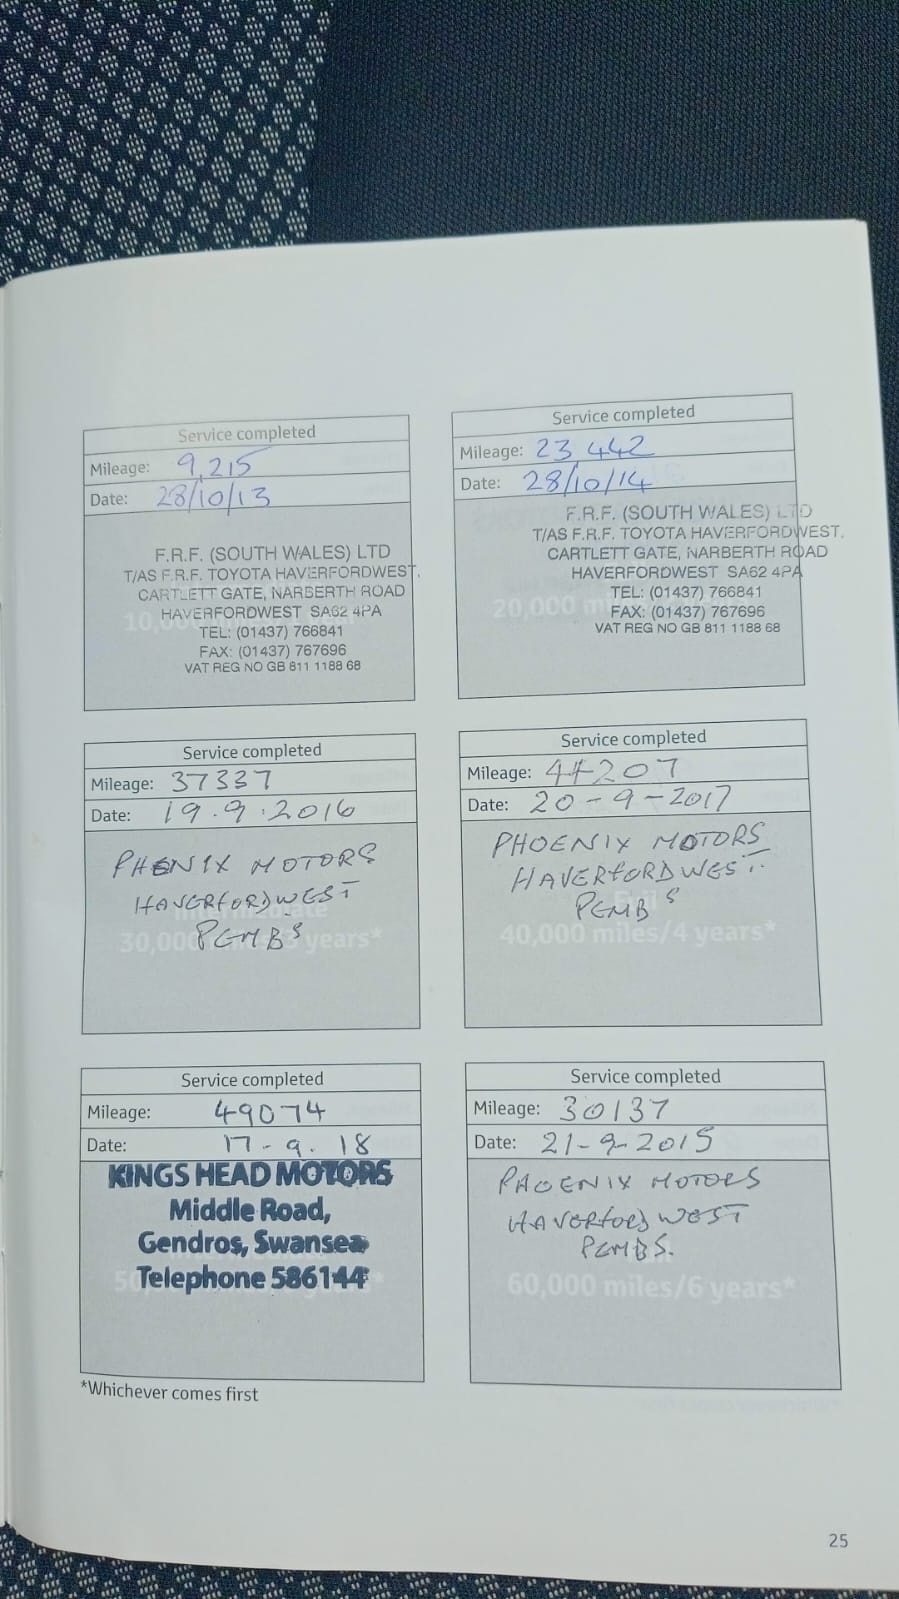 Service completed
Mileage: 9,215
Date: 28/10/13
F.R.F. (SOUTH WALES) LTD
T/AS F.R.F. TOYOTA HAVERFORDWEST,
CARTLETT GATE, NARBERTH ROAD
HAVERFORDWEST SA62 4PA
TEL: (01437) 766841
FAX: (01437) 767696
VAT REG NO GB 811 1188 68
Service completed
Mileage: 23 442
Date: 28/10/14
F.R.F. (SOUTH WALES) LTD
T/AS F.R.F. TOYOTA HAVERFORDWEST,
CARTLETT GATE, NARBERTH ROAD
HAVERFORDWEST SA62 4PA
20,000
TEL: (01437) 766841
FAX: (01437) 767696
VAT REG NO GB 811 1188 68
Service completed
Mileage: 37337
Date: 19.9.2016
PHENIX MOTORS
HAVERFORDWEST
PEMBS
30,000 years*
Service completed
Mileage: 44207
Date: 20-9-2017
PHOENIX MOTORS
HAVERFORDWEST.
PEMBS
40,000 miles/4 years*
Service completed
Mileage: 49074
Date: 17-9.18
KINGS HEAD MOTORS
Middle Road,
Gendros, Swansea
Telephone 586144
Service completed
Mileage: 30137
Date: 21-9-2015
PHOENIX MOTORS
HAVERFORDWEST
PEMBS.
60,000 miles/6 years*
*Whichever comes first
25